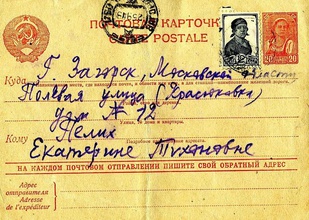 ПОЧТОВАЯ КАРТОЧКА
POSTALE
20 КОП. 20
Куда Г. Загорск, Московской области
Полевая улица (Красюковка)
дом № 72
Кому Пелих
Екатерине Тихоновне
НА КАЖДОМ ПОЧТОВОМ ОТПРАВЛЕНИИ ПИШИТЕ СВОЙ ОБРАТНЫЙ АДРЕС
Адрес
отправителя
Adresse de
l'expéditeur